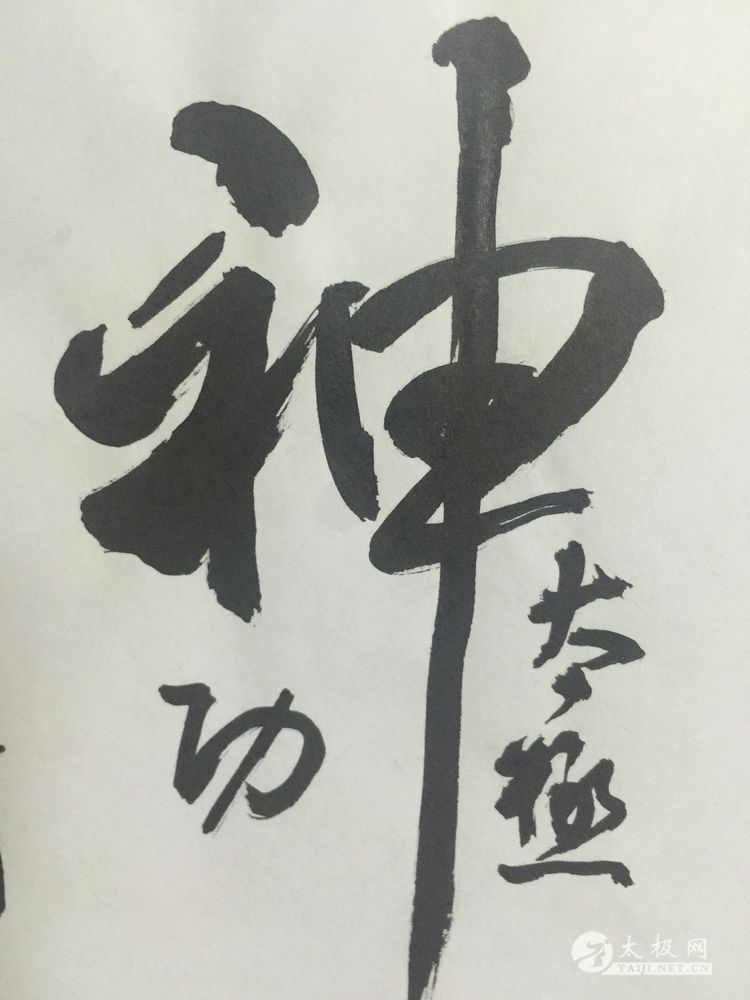 太極
神
功
太极网
TAIJI.NET.CN